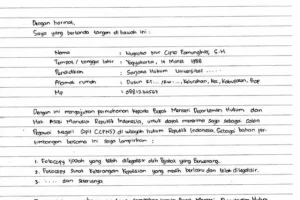 Dengan hormat,
Saya yang bertanda tangan di bawah ini :
Nama : Nugroho Nur Cipto Pamungkas, S.H
Tempat / tanggal lahir : Yogyakarta, 14 Maret 1988
Pendidikan : Sarjana Hukum Universitas .....
Alamat rumah : Dusun RT.../RW..., Kelurahan, Kec, Kabupaten, Prop
Hp : 
Dengan ini mengajukan permohonan kepada Bapak Menteri Departemen Hukum dan
Hak Asasi Manusia Republik Indonesia, untuk dapat menerima saya sebagai Calon
Pegawai Negeri Sipil (CPNS) di wilayah hukum Republik Indonesia. Sebagai bahan per-
timbangan bersama ini saya lampirkan :
1. Fotocopy Ijazah yang telah dilegalisir oleh Pejabat yang Berwenang.
2. Fotocopy Surat Keterangan Kepolisian yang masih berlaku dan telah dilegalisir.
3. ..... dan seterusnya